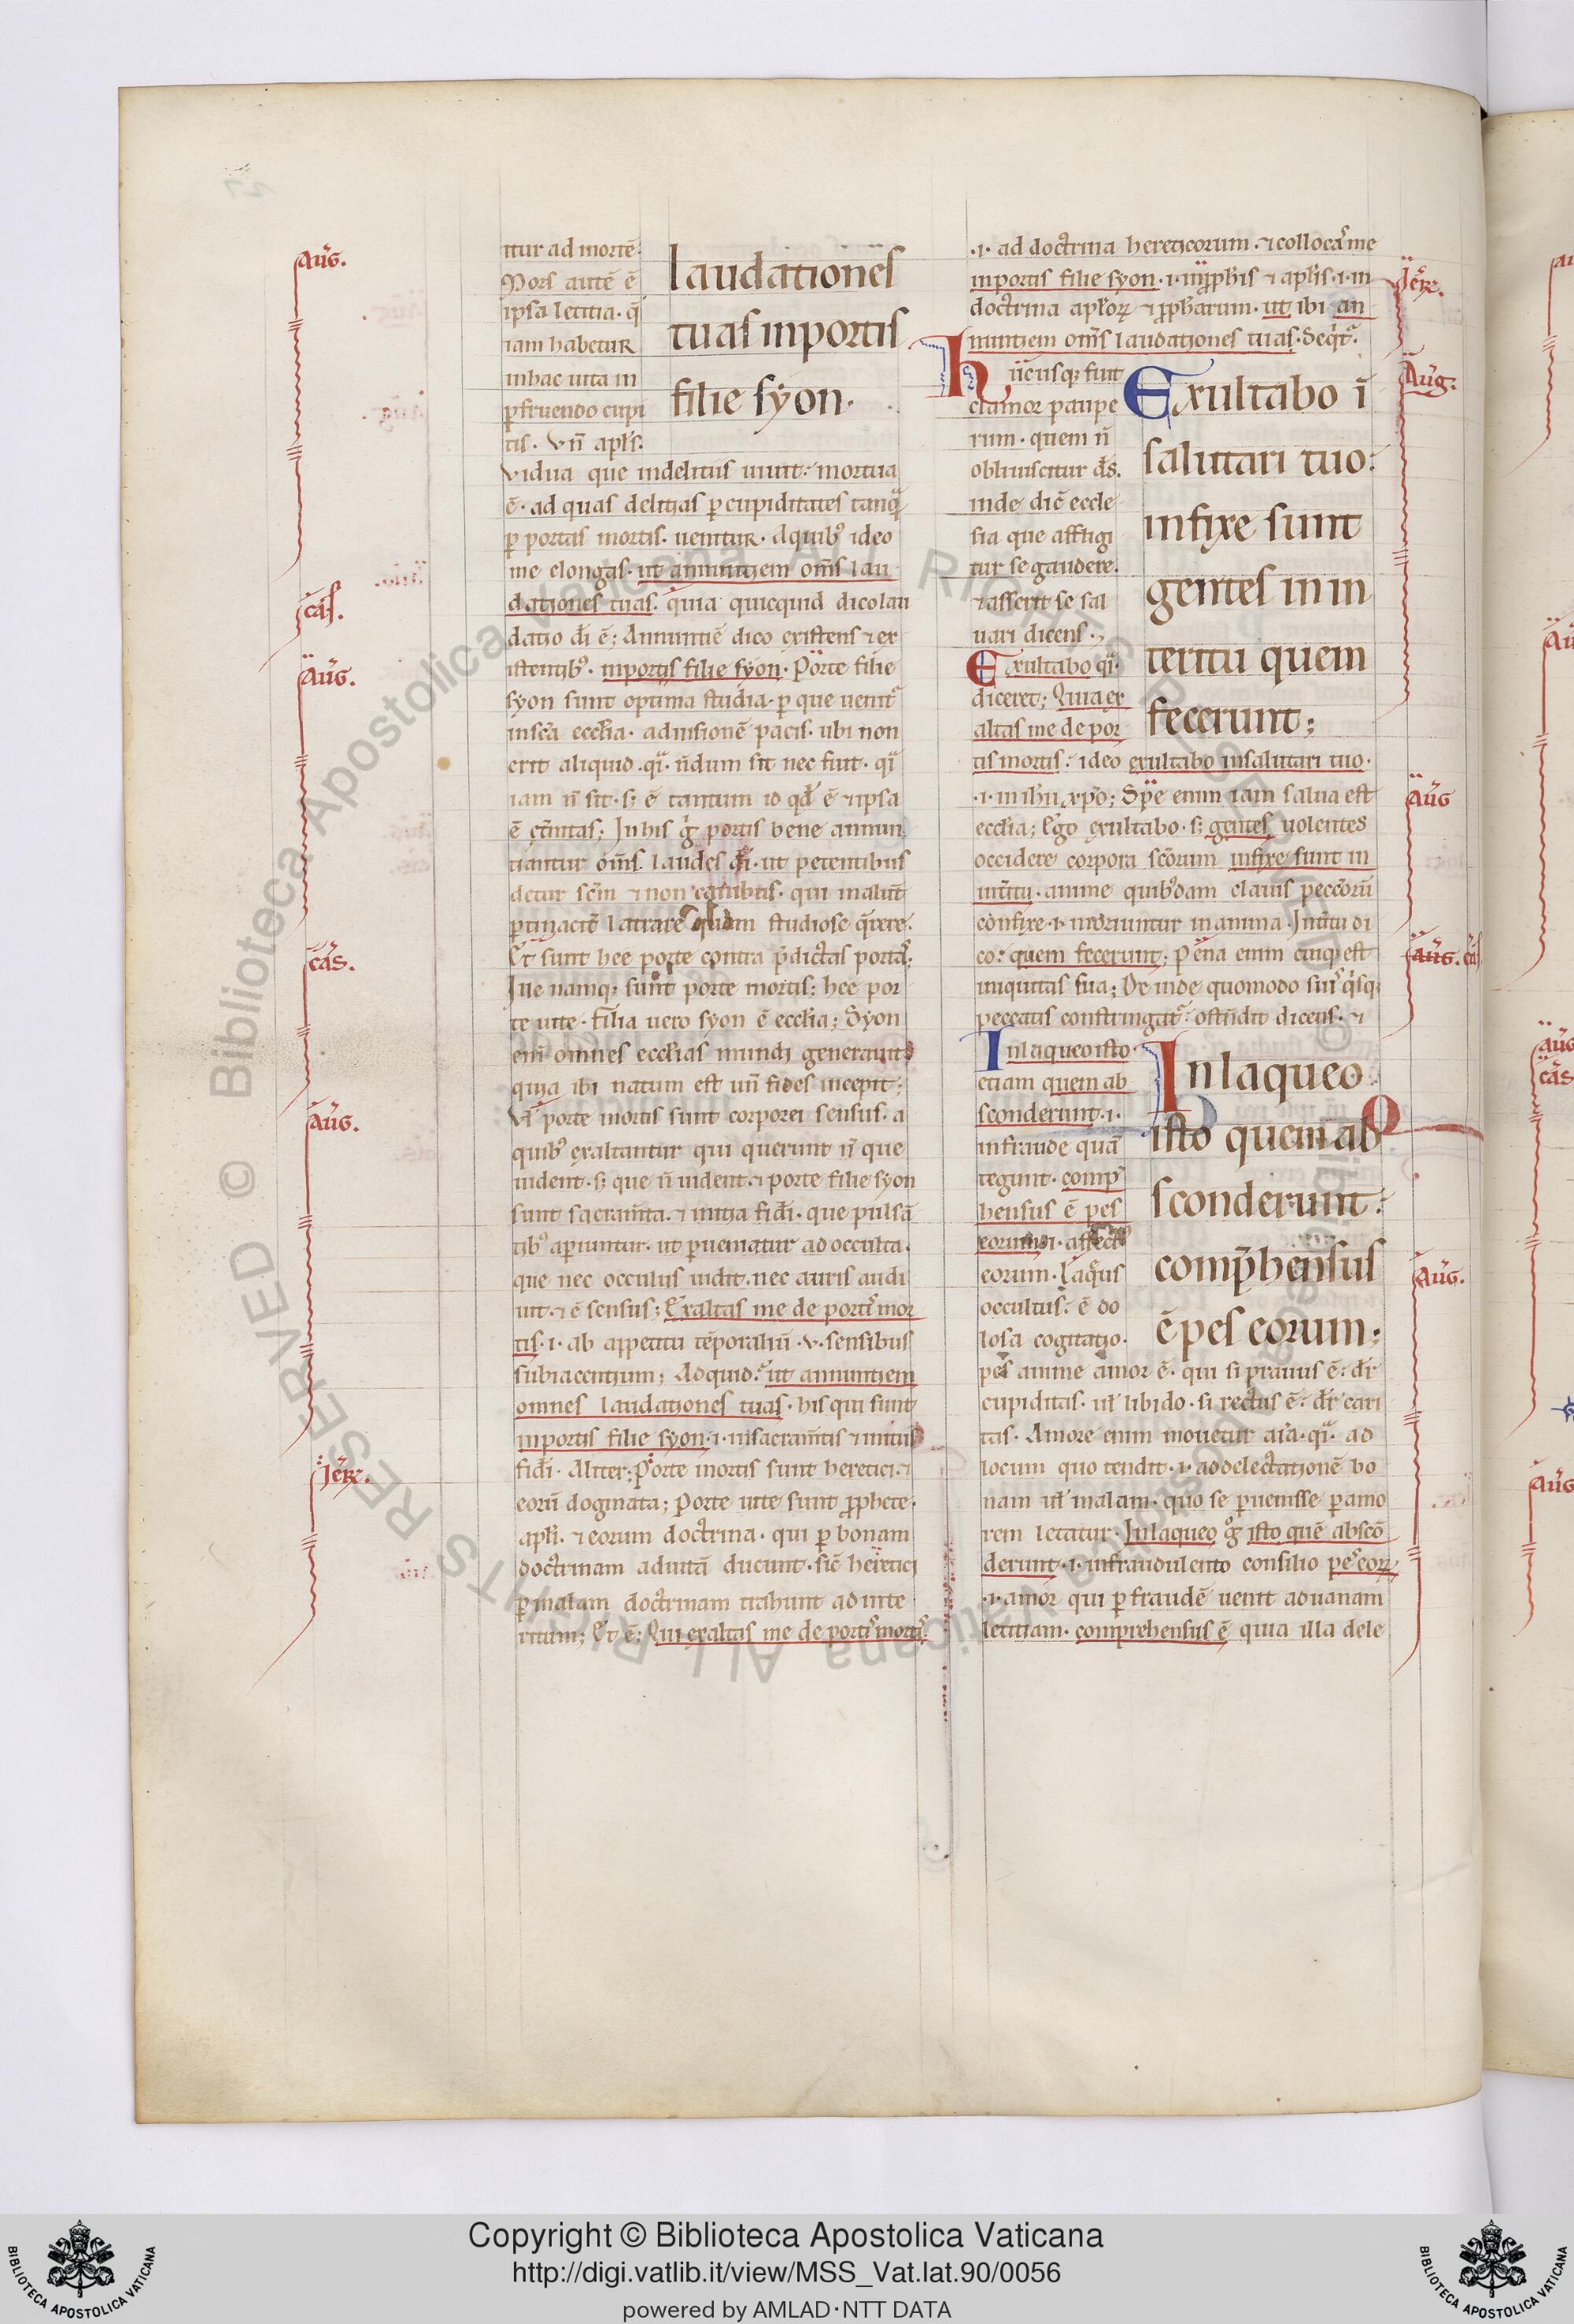 itur ad mortē.
Mors autē ē
ipsa letitia. q̄
iam habetur
inhac uita in
ꝑfruendo cupi
tis. Vn̄ apl's.
laudationes
tuas inportis
filie syon.
vidua que indelitiis uiuit: mortua
ē. ad quas delitias ꝑ cupiditates tanq̄
ꝑ portas mortis. uenitur. Aquib' ideo
me elongas. ut annuntiem om̄s lau
dationes tuas. quia quicquid dico lau
datio d̄i ē; Annuntiē dico existens ⁊ ex
istentib'. inportis filie syon. Porte filie
syon sunt optima studia. ꝑ que uenit'
insc̄a eccl'ia. aduisionē pacis. ubi non
erit aliquid .qͣi. n̄dum sit nec fuit. qͣi
iam n̄ sit. s; ē tantum id qd' ē ⁊ ipsa
ē et̄nitas; In his g' portis bene annun
tiantur om̄s laudes d̄i. ut petentibus
detur sc̄m ⁊ non canibus. qui malūt
ꝑtinacit̄ latrare quam studiose q̄rere.
Et sunt hee porte contra p̄dictas portas;
Ille namq; sunt porte mortis: hee por
te uite. filia uero syon ē eccl'ia; Syon
eni' omnes eccl'ias mundi generauit
quia ibi natum est un̄ fides incepit;
Vl' porte mortis sunt corporei sensus. a
quib' exaltantur qui querunt n̄ que
uident. s; que n̄ uident. ⁊ porte filie syon
sunt sacram̄ta. ⁊ initia fid̄i. que pulsā
tib' aꝑiuntur. ut ꝑueniatur ad occulta.
que nec occulus uidit. nec auris audi
uit. ⁊ ē sensus; Exaltas me de portis mor
tis .i. ab appetitu tēporaliū .v. sensibus
subiacentium; Adquid? ut annuntiem
omnes laudationes tuas. his qui sunt
inportis filie syon .i. insacram̄tis ⁊ initiis
fid̄i. Aliter; Porte mortis sunt heretici ⁊
eorū dogmata; Porte uite sunt ꝓphete.
apl'i. ⁊ eorum doctrina. qui ꝑ bonam
doctrinam aduitā ducunt. sic̄ heretici
ꝑ malam doctrinam trahunt ad inte
ritum; Et ē; Qui exaltas me de portis mortis.
.i. ad doctrina hereticorum. ⁊ collocas me
inportis filie syon .i. inꝓph'is ⁊ apl'is .i. in
doctrina apl'oꝝ ⁊ ꝓph'arum. ut ibi an
nuntiem om̄s laudationes tuas. Seq't'.
hucusq; fuit
clamor paupe
rum. quem n̄
obliuiscitur d̄s.
inde dic̄ eccle
sia que affligi
tur se gaudere.
⁊ asserit se sal
uari dicens.
Exultabo qͣi.
diceret; Quia ex
altas me de por
Exultabo ī
salutari tuo:
infixe sunt
gentes in in
teritu quem
fecerunt;
tis mortis: ideo exultabo insalutari tuo.
.i. in ih̄u xp̄o; Spe enim iam salua est
eccl'ia; Ergo exultabo. s; gentes uolentes
occidere corpora sc̄orum infixe sunt in
int̄itu. anime quib'dam clauis pecc̄orū
confixe .i. moriuntur in anima. Int̄itu di
co: quem fecerunt; Pena enim cuiq; est
iniquitas sua; De inde quomodo suis q'sq;
peccatis constringat'. ostendit dicens. ⁊
In laqueo isto
etiam quem ab
sconderunt .i.
infraude quā
tegunt. comp̄
hensus ē pes
eorum .i. affect'
eorum. Laq̄us
occultus: ē do
losa cogitatio.
In laqueo
isto quem ab
sconderunt:
comp̄hensus
ē pes eorum;
pes anime amor ē. qui si prauus ē: dr̄
cupiditas. ul' libido. si rectus ē: dr̄ cari
tas. Amore enim mouetur aīa. qͣi. ad
locum quo tendit .i. addelectationē bo
nam ul' malam. quo se ꝑuenisse ꝑ amo
rem letatur. In laqueo g' isto quē abscō
derunt .i. infraudulento consilio pes eoꝝ
.i. amor qui ꝑ fraudē uenit aduanam
letitiam. comprehensus ē quia illa dele
Aug.
Cas.
Aug.
Cas.
Aug.
Jer.
Jer.
Aug.
Aug
Aug. Cas
Aug.
Copyright © Biblioteca Apostolica Vaticana
http://digi.vatlib.it/view/MSS_Vat.lat.90/0056
powered by AMLAD·NTT DATA
BIBLIOTECA APOSTOLICA VATICANA
BIBLIOTECA APOSTOLICA VATICANA
© Biblioteca Apostolica Vaticana ALL RIGHTS RESERVED